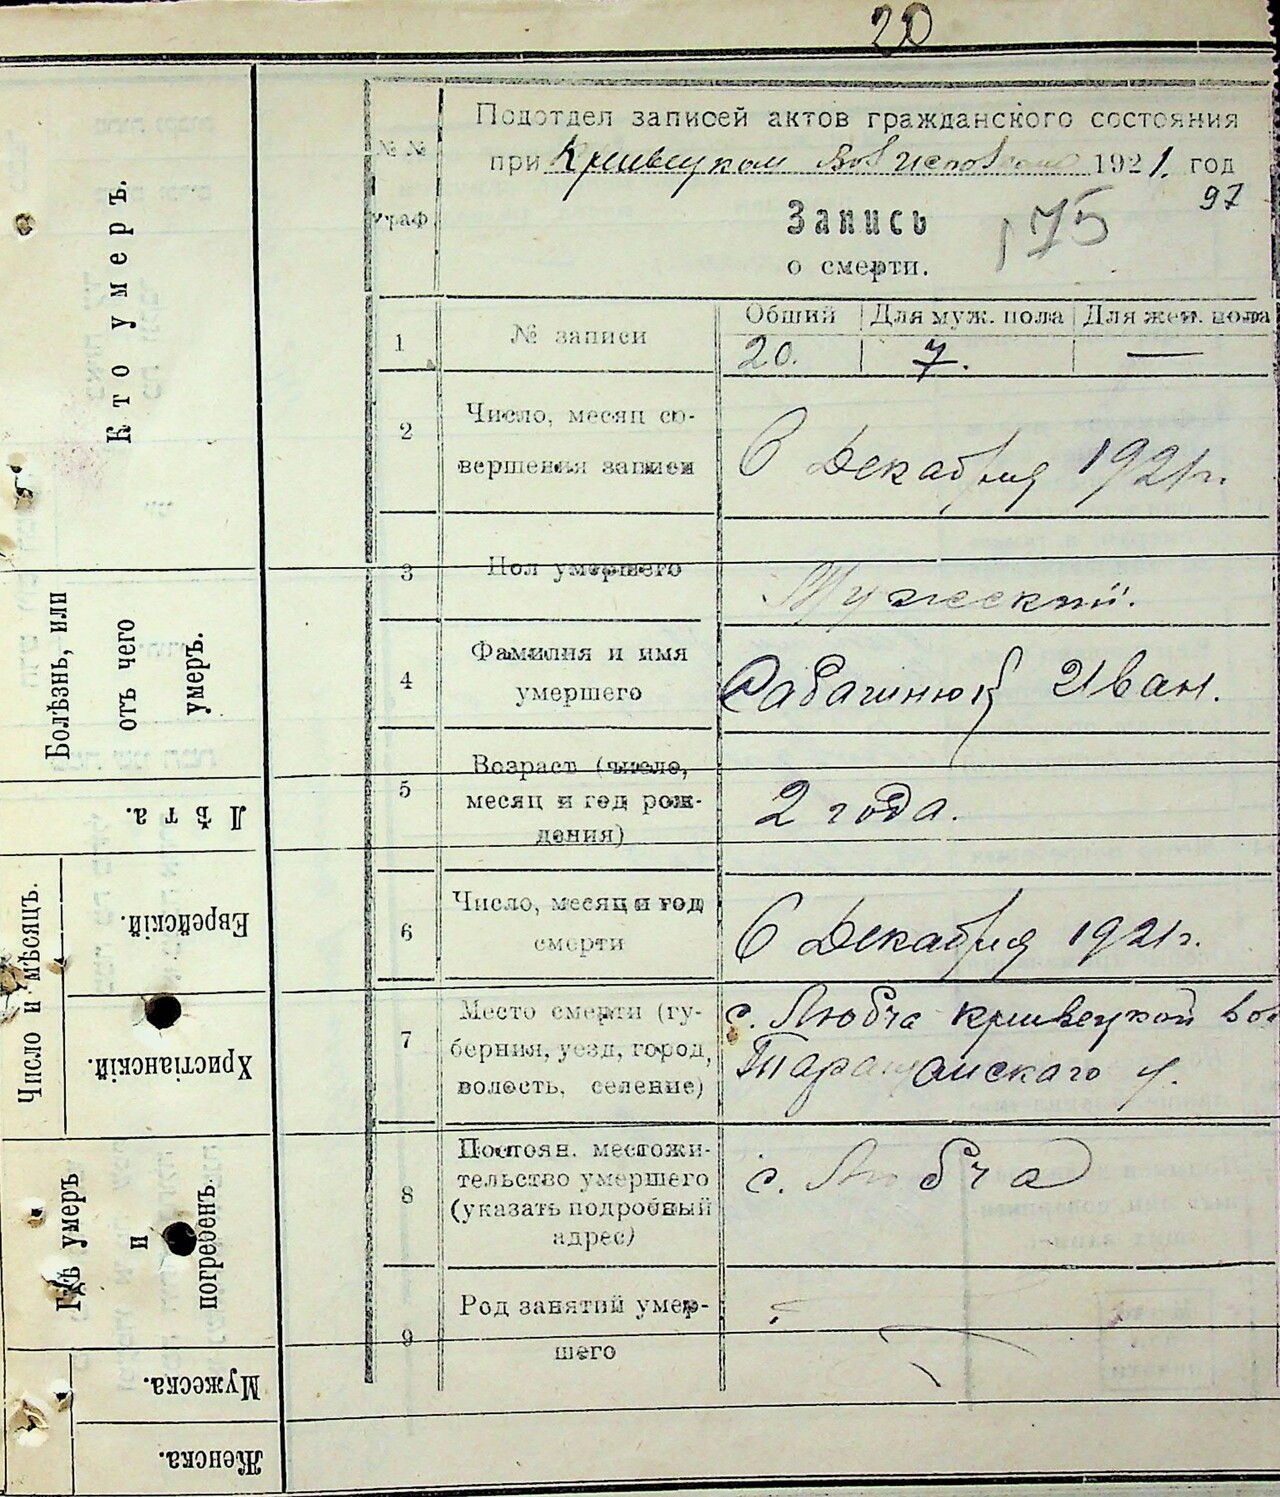 20
Подотдел записей актов гражданского состояния
при Кривецком Вол исполкоме 1921. год
97
Запись
175
о смерти.
№№ граф
Общий Для муж. пола Для жен. пола
1 № записи 20. 7. —
2 Число, месяц со-
вершения записи
6 Декабрия 1921 г.
3 Пол умершего Мужеский.
4 Фамилия и имя
умершего
Сабашнюк Иван.
5 Возраст (число,
месяц и год рож-
дения)
2 года.
6 Число, месяц и год
смерти
6 Декабрия 1921 г.
7 Место смерти (гу-
берния, уезд, город,
волость, селение)
с. Любча Кривецкой Вол
Таращанскаго у.
8 Постоян. местожи-
тельство умершего
(указать подробный
адрес)
с. Любча
9 Род занятий умер-
шего
Кто умеръ.
Болѣзнь, или
отъ чего
умеръ.
Лѣта.
Число и мѣсяцъ.
Еврейскій.
Христіанскій.
Гдѣ умеръ
и
погребенъ
Мужеска.
Женска.